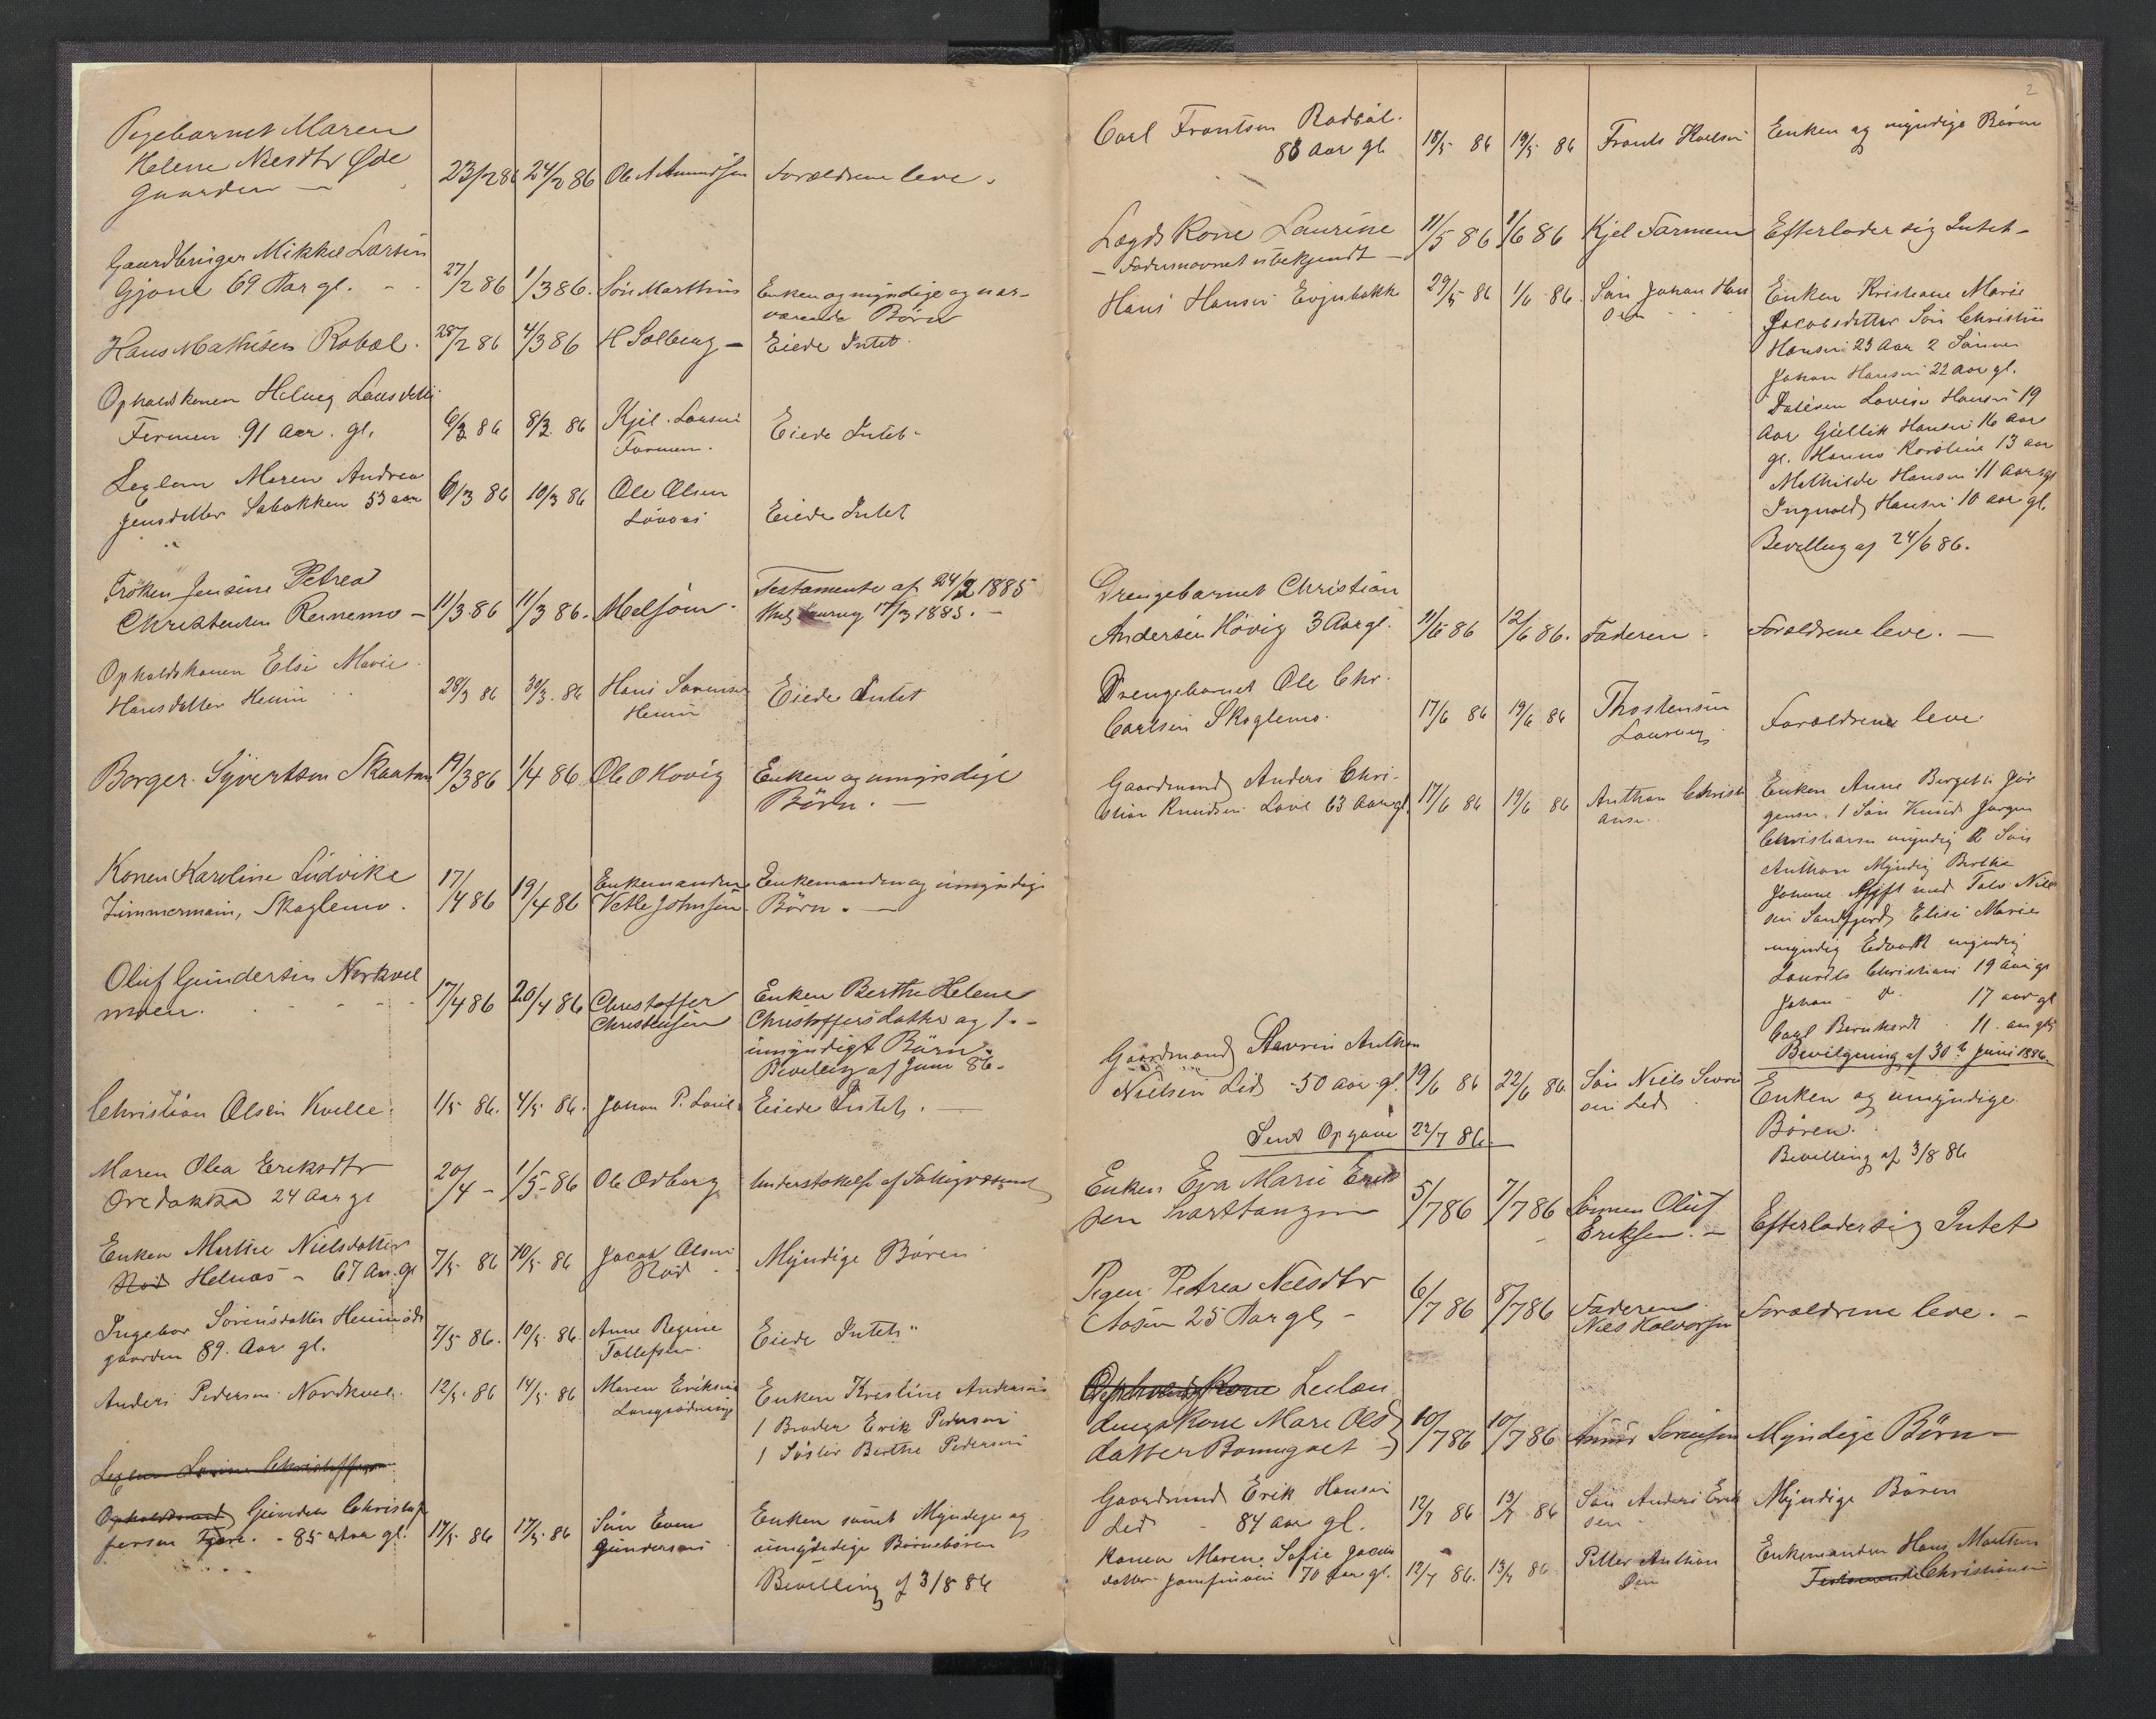 Pigebarnet Maren
Helene Nielsdtr Øde
gaarden — 23/2 86 24/2 86 Ole A Amundsen Forældrene leve.
Gaardbruger Mikkel Larsen
Gjone 69 Aar gl. 27/2 86 1/3 86. Søn Marthin Enken og myndige og nær-
værende Børn
Hans Mathisen Rabal. 28/2 86 4/3 86 H Solberg — Eiede Intet
Opholdskonen Helvig Larsdatter
Fermen 91 Aar. gl. 6/3 86 8/3 86 Kjel. Larsen Eiede Intet-
Farmen.
Leglem Maren Andrea
Jensdatter Sabakken 53 aar 6/3 86 10/3 86 Ole Olsen Eiede Intet
Løvaas
Frøken Jensine Petrea Testamente af 24/2 1885
Christensen Reinemo — 11/3 86 11/3 86. Melsom. 17/3 1885. —
Opholdskonen Elsi Marie
Hansdatter Hemi 28/3 86 30/3. 86 Hans Sørensen Eiede Intet
Hemi
Borger Syvertsen Skaatan 19/3 86 1/4 86 Ole O Hovig Enken og umyndige
Børn. —
Konen Karoline Ludvika
Zimmermain, Skoglemo. 17/4 86 19/4 86 Enkemanden Enkemanden og umyndige
Vetle Johnsen. Børn. —
Oluf Gundersen Norkvel
moen. 17/4 86 20/4 86 Christoffer Enken Berthe Helene
Christensen Christoffersdatter og 1. -
umyndigt Børn.
Bevilling af Juni 86.
Christian Olsen Kvelle. 1/5 86. 4/5 86. Johan P. Eiede Intet. —
Maren Olea Eriksdtr
Oredakka 24 Aar gl 20/4 - 1/5 86 Ole Odberg Understøttelse af Fattigvæsenet
Enken Marthe Nielsdatter
Rød Helnæs - 67 Aar. gl 7/5 86 10/5 86 Jacob Olsen Myndige Børen
Rød
Ingebor Sørensdatter Hemmøde
gaarden 89. Aar gl. 7/5 86. 10/5. 86. Anne Regine Eiede Intet "
Tollefsen.
Anders Pedersen Nordkvel. 12/5. 86 14/5 86 Maren Eriksen Enken Kristine Andersen
Langrødninge 1 Broder Erik Pedersen
1 Søster Berthe Pedersen
Leglem Lovise Christoffersen
Opholdsmand Gunder Christof
fersen Fjære. - 85 Aar gl. 17/5 86 17/5 86 Søn Even Enken samt Myndige og
Gundersen umyndige Børnebøren
Bevilling af 3/8 86
2
Carl Frantsen Radbøl.
88 Aar gl 18/5 86 19/5 86 Frants Karlsen Enken og myndige Børen
Lægds Kone Laurine 11/5 86 1/6 86 Kjel Farmen Efterlader sig Intet -
- Fadernavnet ubekjendt -
Hans Hansen Evjubakke 29/5 86 1/6 86. Søn Johan Han Enken Kristiane Marie
sen Jacobsdatter Søn Christian
Hansen 23 Aar 2 Sønner
Johan Hansen 22 aar gl.
Datteren Lovise Hansen 19
Aar Gullik Hansen 16 aar
gl. Hanna Karoline 13 aar
Mathilde Hansen 11 aar gl
Ingvald Hansen 10 aar gl.
Bevilling af 24/6 86.
Drengebarnet Christian
Andersen Høvig 3 Aar gl. 11/6 86 12/6 86. Faderen. Forældrene leve. —
Drengebarnet Ole Chr.
Carlsen Skoglemo. 17/6 86 19/6 86 Thostensen Forældrene leve.
Laurvig
Gaardmand Anders Chri-
stian Knudsen Love 63 Aar gl. 17/6 86 19/6 86 Anthon Christi Enken Anne Birgete Jør
ansen. gensen. 1 Søn Knud Jørgen
Christiansen myndig 2 Søn
Anthon Myndig Berthe
Johanne Gift med Tolv Niel
sen Sandefjord, Elise Marie
myndig Edvart myndig
Laurits Christiani 19 aar gl
Johan - D. 17 aar gl
Carl Bernhardt 11 aar gl
Bevilgning af 30te Juni 1886.
Gaardmand Sevrin Anthon
Nielsen Lid - 50 aar gl. 19/6 86 22/6 86 Søn Niels Sevrin Enken og umyndige
sen Lid Børen.
Sent Opgave 22/7 86. Bevilling af 3/8 86
Enken Eva Marie Erik
sen Svartangen 5/7 86 7/7 86 Sønnen Oluf Efterlader sig Intet
Eriksen. -
Pigen Petrea Nielsdtr
Aasen 25 Aar gl. - 6/7 86 8/7 86 Faderen Forældrene leve. -
Niels Halvorsen
Opholds Kone Leilæn
dings Kone Mari Ols
datter Bommgaet - 10/7 86 10/7 86 Sørensen Myndige Børn -
Gaardmand Erik Hansen
Lid - 84 aar gl. 12/7 86 13/7 86 Søn Anders Erik Myndige Børen
sen
Konen Maren Sofie Jacobs
datter 70 Aar gl. 12/7 86. 13/7 86 Petter Anthon Enkemanden Hans Mathon
Christiansen